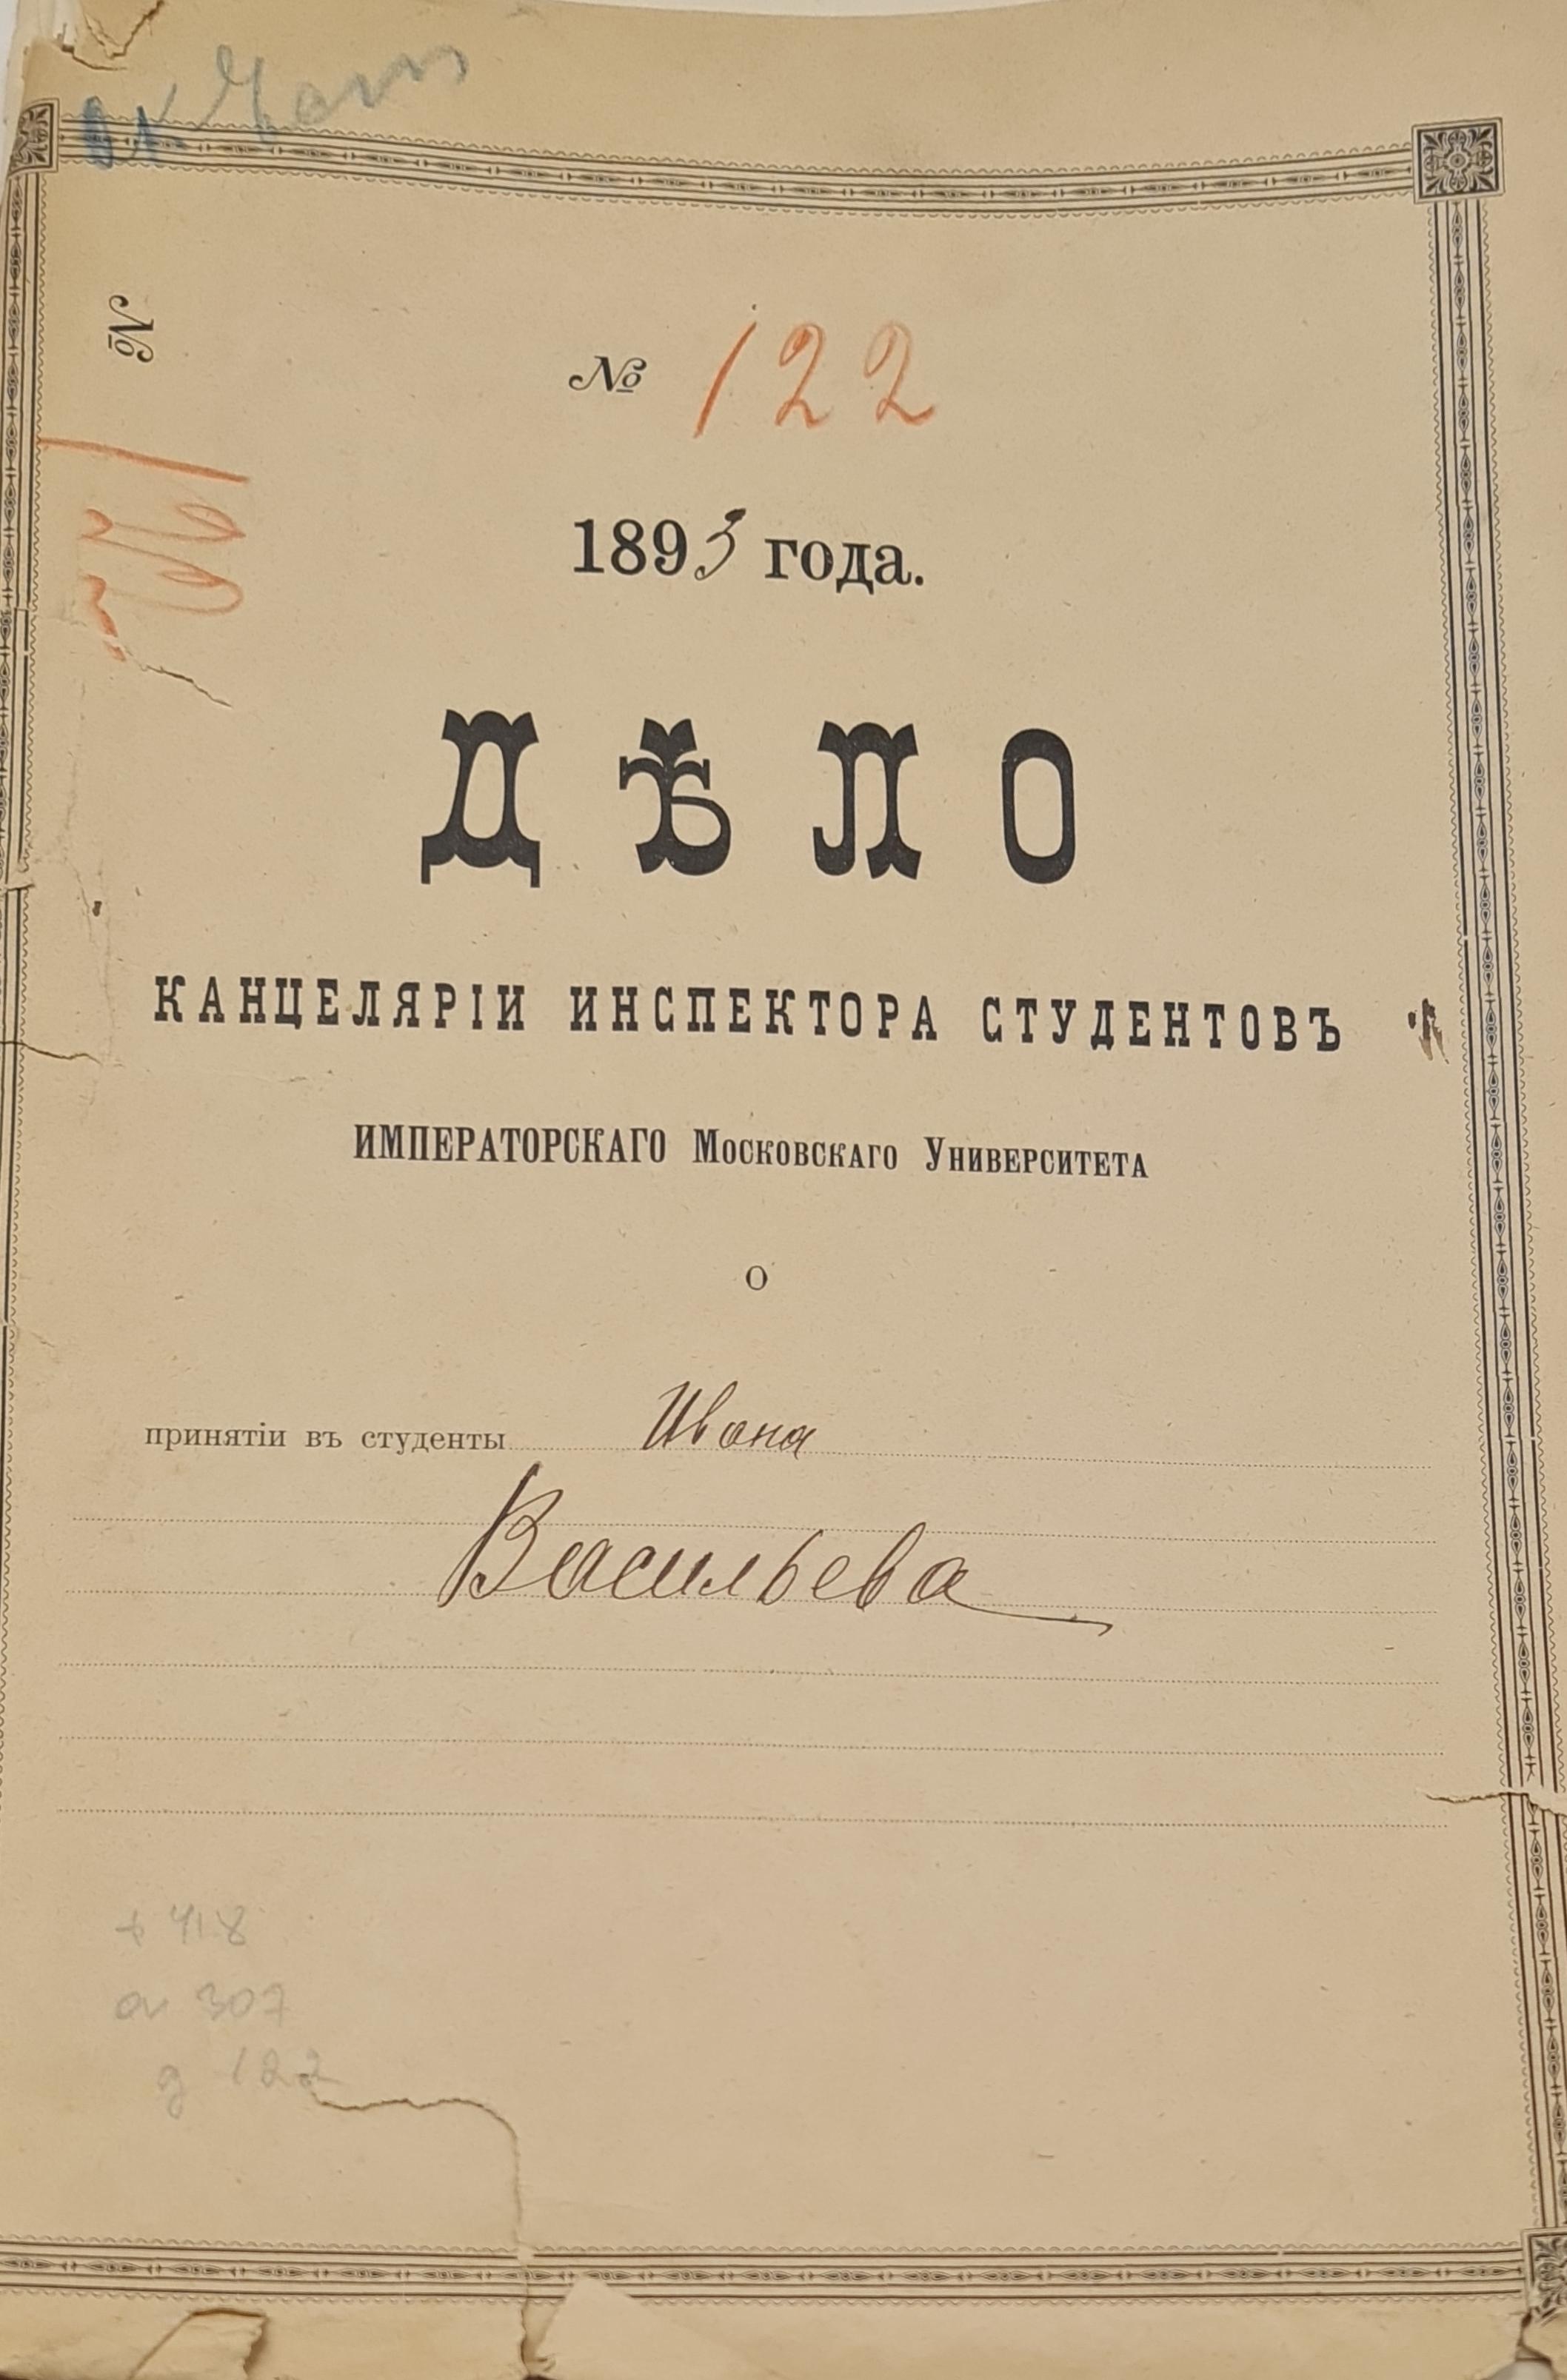 № 122
№ 122
1893 года.
ДѢЛО
КАНЦЕЛЯРІИ ИНСПЕКТОРА СТУДЕНТОВЪ
ИМПЕРАТОРСКАГО Московскаго Университета
О
принятіи въ студенты Ивана
Васильева
418
307
д 122